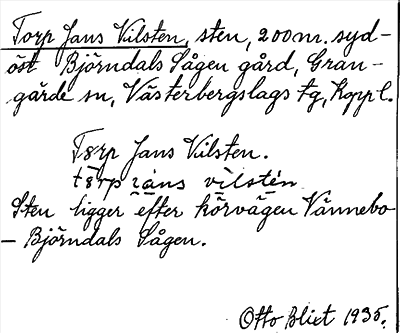 Torp Jans Vilsten, sten, 200 m. syd-
öst Björndals Sågen gård, Gran-
gärde sn, Västerbergslags tg, Kopp l.
Torp Jans Vilsten.
Sten ligger efter körvägen Vännebo
– Björndals Sågen.
Otto Blixt 1935.